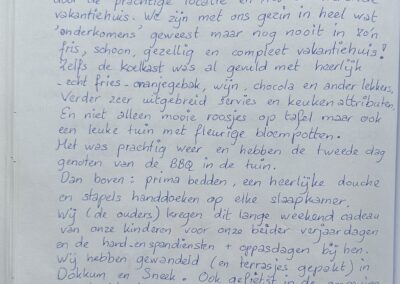 door de prachtige locatie en
vakantiehuis. We zijn met ons gezin in heel wat
'onderkomens' geweest maar nog nooit in zo'n
fris, schoon, gezellig en compleet vakantiehuis!
Zelfs de koelkast was al gevuld met heerlijk
echt fries - oranjegebak, wijn, chocola en ander lekkers.
Verder zeer uitgebreid servies en keukenattributen.
En niet alleen mooie roosjes op tafel maar ook
een leuke tuin met fleurige bloempotten.
Het was prachtig weer en hebben de tweede dag
genoten van de BBQ in de tuin.
Dan boven: prima bedden, een heerlijke douche
en stapels handdoeken op elke slaapkamer.
Wij (de ouders) kregen dit lange weekend cadeau
van onze kinderen voor onze beider verjaardagen
en de hand- en spandiensten + oppasdagen bij hen.
Wij hebben gewandeld (en terrasjes gepakt) in
Dokkum en Sneek. Ook gefietst in de omgeving